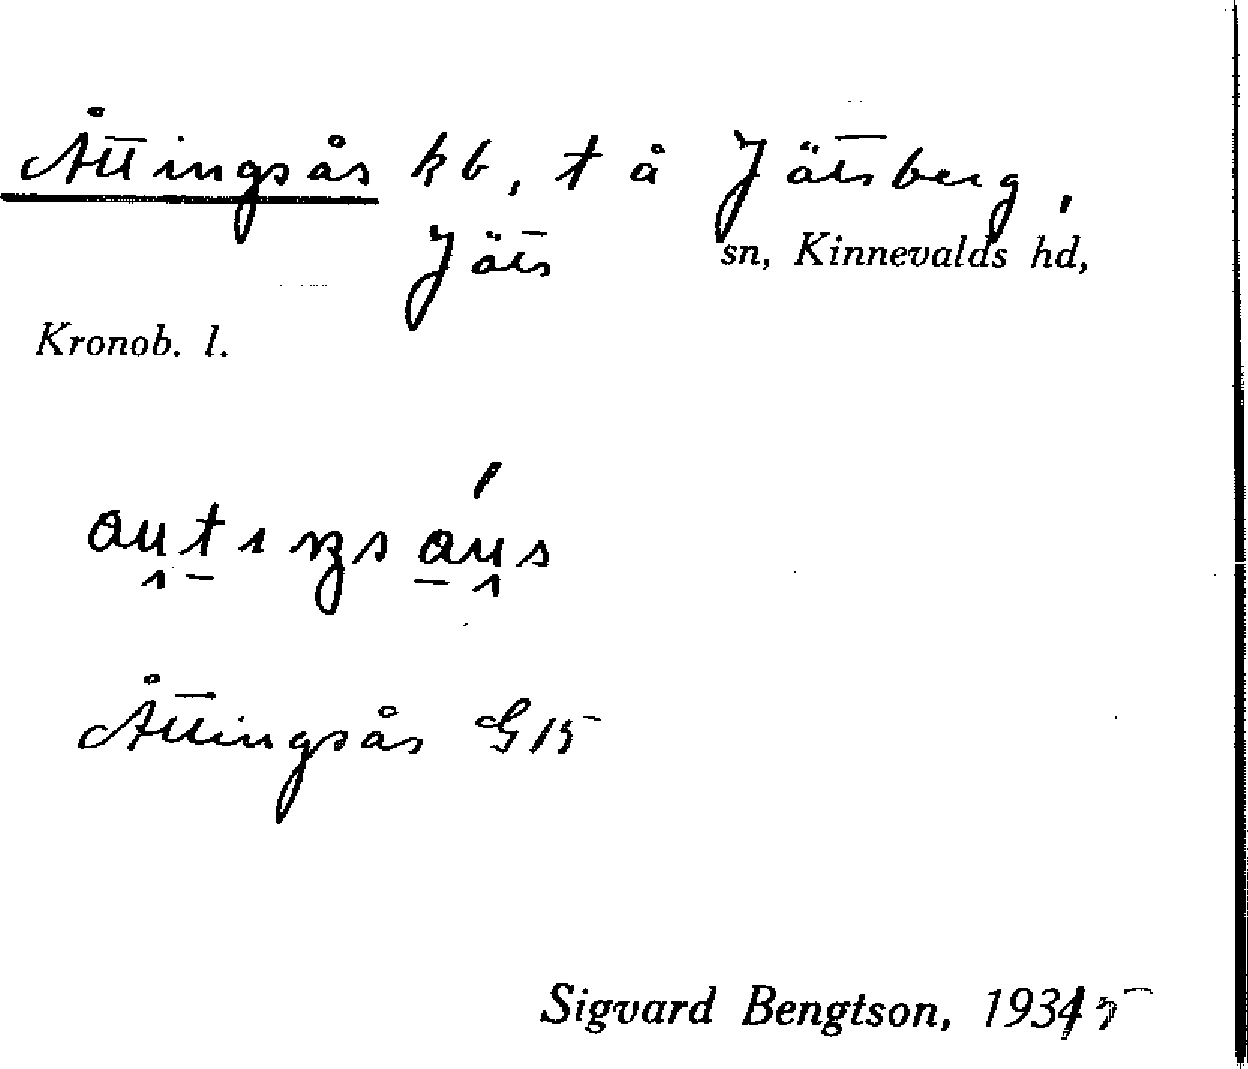 Åttingsås kb, t å Jätsberg,
Jäts sn, Kinnevalds hd,
Kronob. l.
Åttingsås G 15
Sigvard Bengtson, 1935